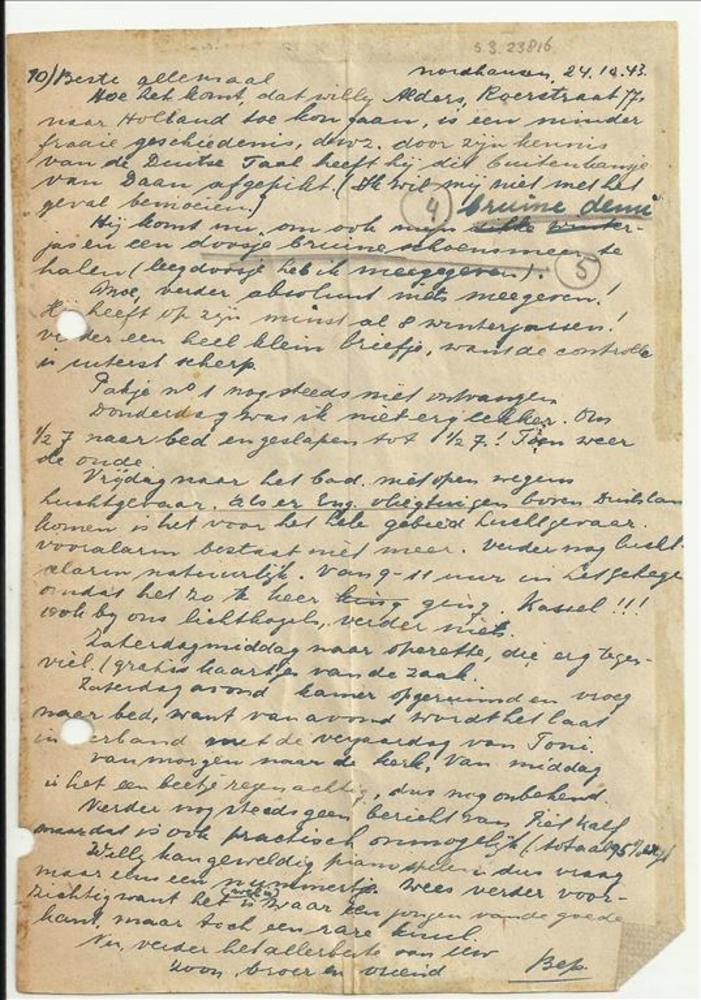 S 3. 23816
10) Beste allemaal Nordhausen, 24.10.43.
Hoe het komt, dat Willy Alders, Roerstraat 77,
naar Holland toe kon gaan, is een minder
fraaie geschiedenis, d.w.z. door zijn kennis
van de Duitse Taal heeft hij dit buitenkansje
van Daan afgepikt. (Ik wil mij niet met het
geval bemoeien.) 4 bruine demi
Hij komt nu, om ook mijn winter-
jas en een doosje bruine schoensmeer te
halen (leeg doosje heb ik meegegeven). 5
Moe, verder absoluut niets meegeven!
Hij heeft op zijn minst al 8 winterjassen!
verder een heel klein briefje, want de controle
is uiterst scherp.
Pakje no 1 nog steeds niet ontvangen
Donderdag was ik niet erg lekker. Om
1/2 7 naar bed en geslapen tot 1/2 7! Toen weer
de oude.
Vrijdag naar het bad. niet open wegens
luchtgevaar. Als er Eng. vliegtuigen boven Duitslan
komen is het voor het hele gebied luchtgevaar.
vooralarm bestaat niet meer. Verder nog lucht-
alarm natuurlijk. Van 9-11 uur in
omdat het zo te keer ging. Kassel!!!
ook by ons lichtkogels, verder niets.
Zaterdagmiddag naar operette, die erg tegen-
viel. (gratis kaartjes van de zaak.
Zaterdagavond kamer opgeruimd en vroeg
naar bed, want vanavond wordt het laat
in verband met de verjaardag van Toni.
Van morgen naar de kerk, Van middag
is het een beetje regenachtig, dus nog onbekend.
Verder nog steeds geen bericht van Piet Kalf
maar dat is ook practisch onmogelijk (totaal 95%
Willy kan geweldig piano spelen dus vraag
maar eens een nummertje. Wees verder voor-
zichtig want het is (Willy) zwaar een jongen van de goede
kant, maar toch een rare knul.
Nu, verder het allerbeste van Uw
Zoon, broer en vriend Bep.